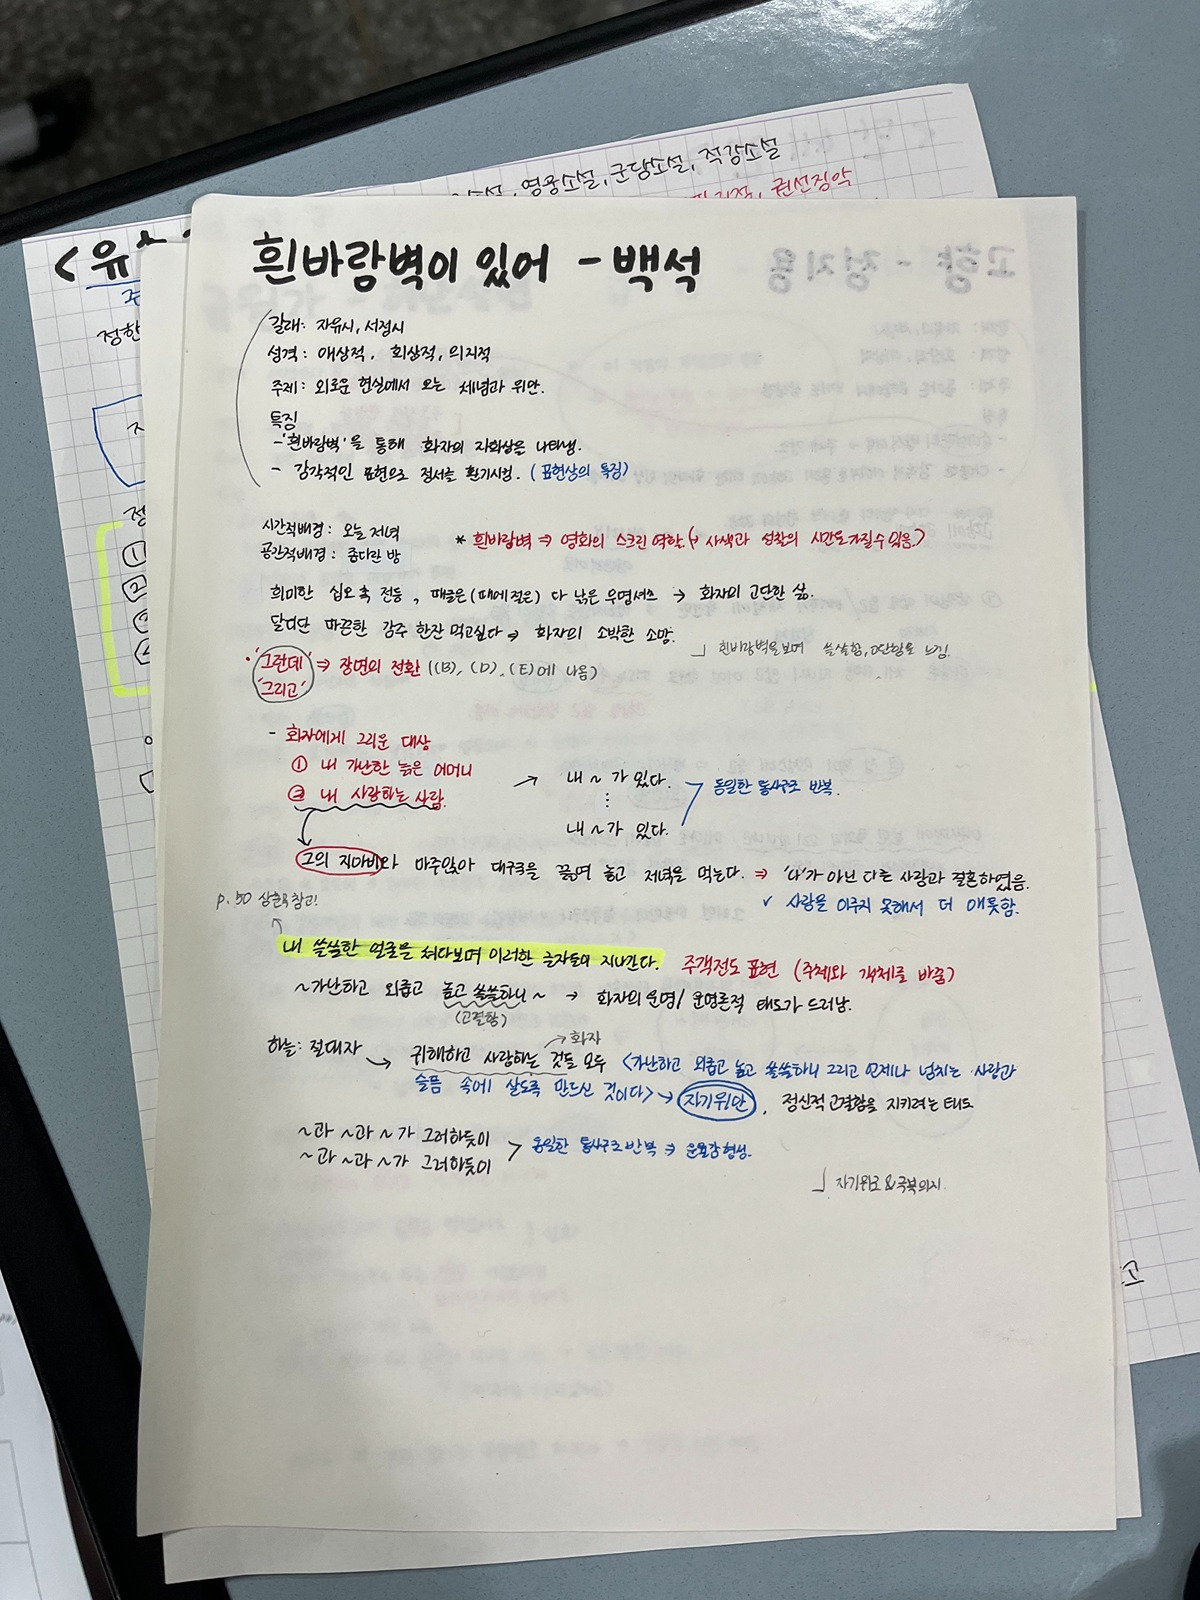 소설, 영웅소설, 군담소설, 적강소설
권선징악
<유
정한
①
②
흰바람벽이 있어 - 백석
갈래: 자유시, 서정시
성격: 애상적, 회상적, 의지적
주제: 외로운 현실에서 오는 체념과 위안.
특징
-'흰바람벽'을 통해 화자의 자화상을 나타냄.
- 감각적인 표현으로 정서를 환기시킴. (표현상의 특징)
시간적배경: 오늘 저녁
공간적배경: 좁다란 방
* 흰바람벽 ⇒ 영화의 스크린 역할 (↳ 사색과 성찰의 시간도 가질 수 있음.)
희미한 십오촉 전등, 때글은(때에 절은) 다 낡은 무명셔츠 → 화자의 고단한 삶.
달디단 따끈한 감주 한잔 먹고싶다 ⇒ 화자의 소박한 소망.
흰바람벽을 보며 쓸쓸함, 고단함을 느낌.
'그런데'
'그리고'
⇒ 장면의 전환 ((B), (D), (E)에 나옴)
- 화자에게 그리운 대상
① 내 가난한 늙은 어머니
② 내 사랑하는 사람
→ 내 ~ 가 있다.
⋮
내 ~ 가 있다.
동일한 통사구조 반복.
그의 지아비와 마주앉아 대구국을 끓여 놓고 저녁을 먹는다. ⇒ '나'가 아닌 다른 사람과 결혼하였음.
✓ 사랑을 이루지 못해서 더 애틋함.
p.50 상호 참고!
내 쓸쓸한 얼굴을 쳐다보며 이러한 글자들이 지나간다. 주객전도 표현 (주체와 객체를 바꿈)
~가난하고 외롭고 높고 쓸쓸하니~ → 화자의 운명/ 운명론적 태도가 드러남.
(고결함)
화자
하늘: 절대자 → 귀해하고 사랑하는 것들 모두 <가난하고 외롭고 높고 쓸쓸하니 그리고 언제나 넘치는 사랑과
슬픔 속에 살도록 만드신 것이다> → 자기위안, 정신적 고결함을 지키려는 태도
~과 ~과 ~가 그러하듯이
~과 ~과 ~가 그러하듯이
동일한 통사구조 반복 ⇒ 운율감 형성.
자기위로 & 극복의지.
고